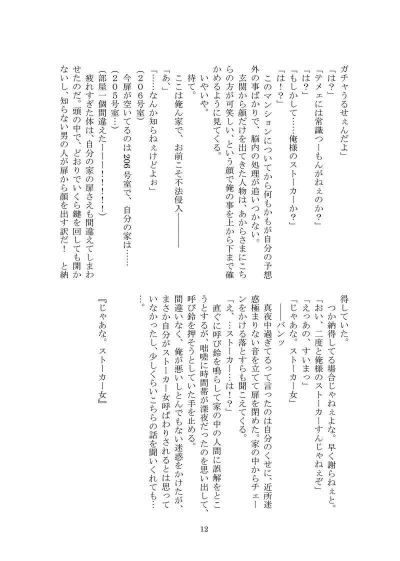 ガチャうるせぇんだよ」
「は？」
「テメェには常識つーもんがねぇのか？」
「は？」
「もしかして……俺様のストーカーか？」
「は！？」
このマンションについてから何もかもが自分の予想
外の事ばかりで、脳内の処理が追いつかない。
玄関から顔だけを出てきた人物は、あからさまにこち
らの方が可笑しい、という顔で俺の事を上から下まで確
かめるように見てくる。
いやいや。
待て。
ここは俺ん家で、お前こそ不法侵入―――
「あ、」
「……なんか知らねぇけどよぉ」
(２０６号)
今扉が空いてるのは 206 号室で、自分の家は……
(２０５号室…)
(部屋一個間違えたーーー！！！！！！)
疲れすぎた体は、自分の家の扉さえも間違えてしまわ
せたのだ。頭の中で、どおりでいくら鍵を回しても開か
ないし、知らない男の人が扉から顔を出す訳だ！　と納
得していた。
つか納得してる場合じゃねぇよな。早く謝らねぇと。
「おい、二度と俺様のストーカーすんじゃねぇぞ」
「えっあの、すいまっ」
「じゃあな。ストーカー女」
―――バンッ
真夜中過ぎてるって言ったのは自分のくせに、近所迷
惑極まりない音を立てて扉を閉めた。家の中からチェー
ンをかける落とすらも聞こえてくる。
「え、…ストーカー…は！？」
直ぐに呼び鈴を鳴らして家の中の人間に誤解をとこ
うとするが、咄嗟に時間帯が深夜だったのを思い出して、
呼び鈴を押そうとしていた手を止める。
間違いなく、俺が悪いしとんでもない迷惑をかけたが、
まさか自分がストーカー女呼ばわりされるとは思って
いなかったし、少しくらいこちらの話を聞いてくれても…
…。
『じゃあな。ストーカー女』
12